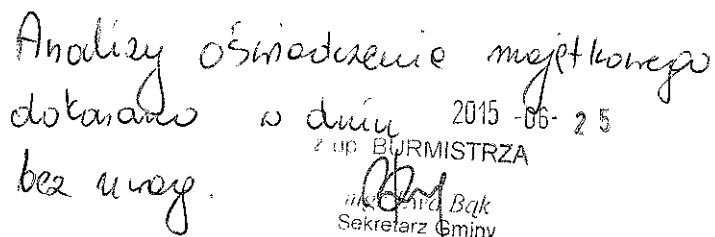 Analizy oświadczenia majątkowego
dokonano w dniu 2015 -06- 25
z up. BURMISTRZA
bez uwag.
Bąk
Sekretarz Gminy